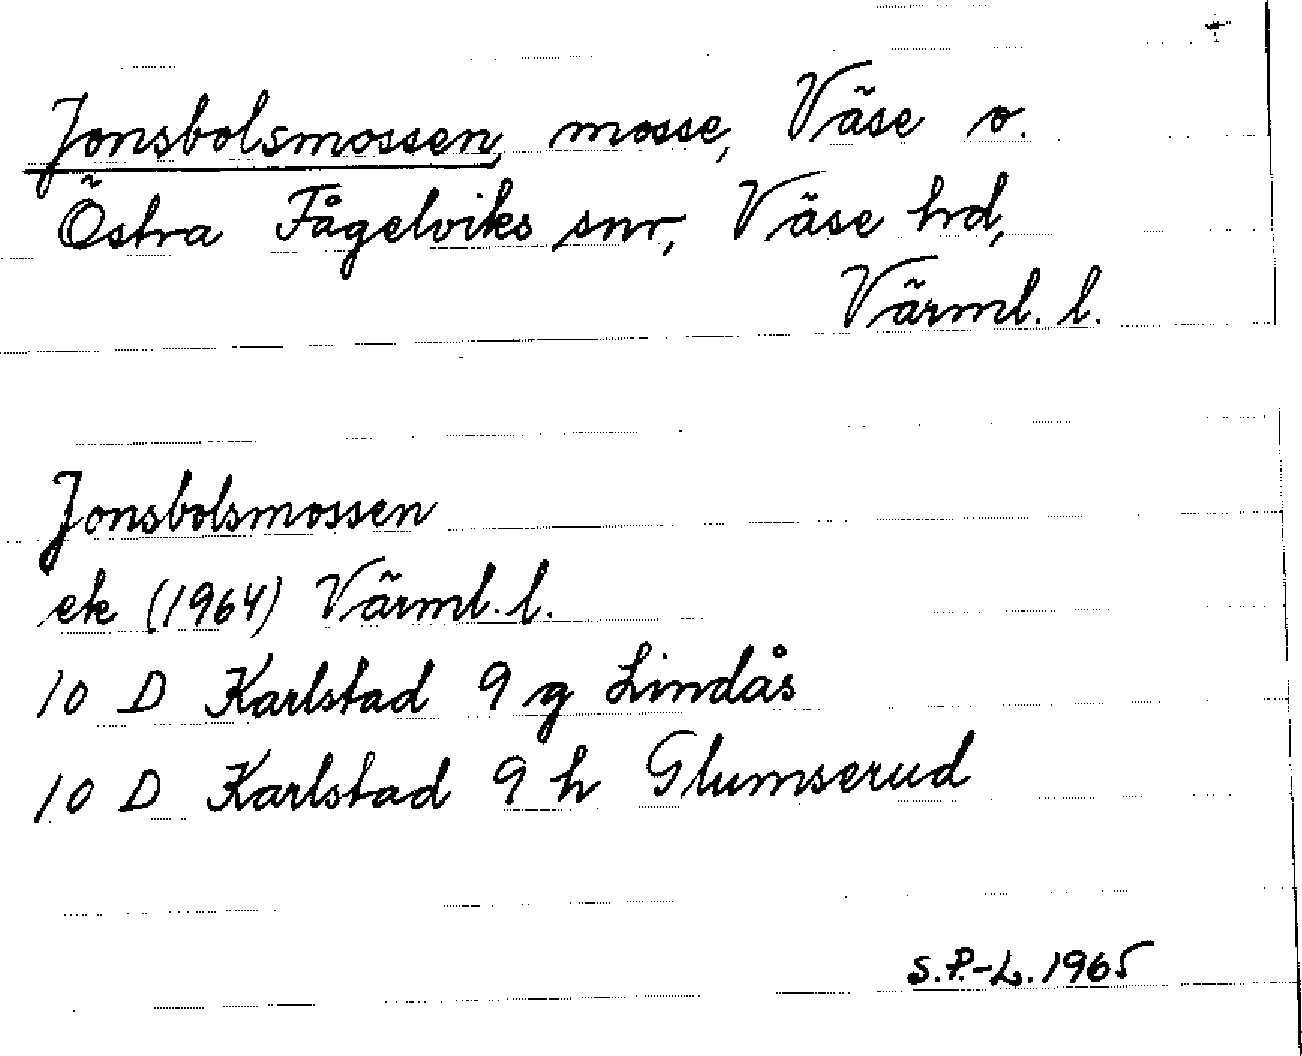 Jonsbolsmossen, mosse, Väse o.
Östra Fågelviks snr, Väse hd,
Värml. l.
Jonsbolsmossen
ek (1964) Värml. l.
10 D Karlstad 9 g Lindås
10 D Karlstad 9 h Glumserud
S.P.-L. 1965